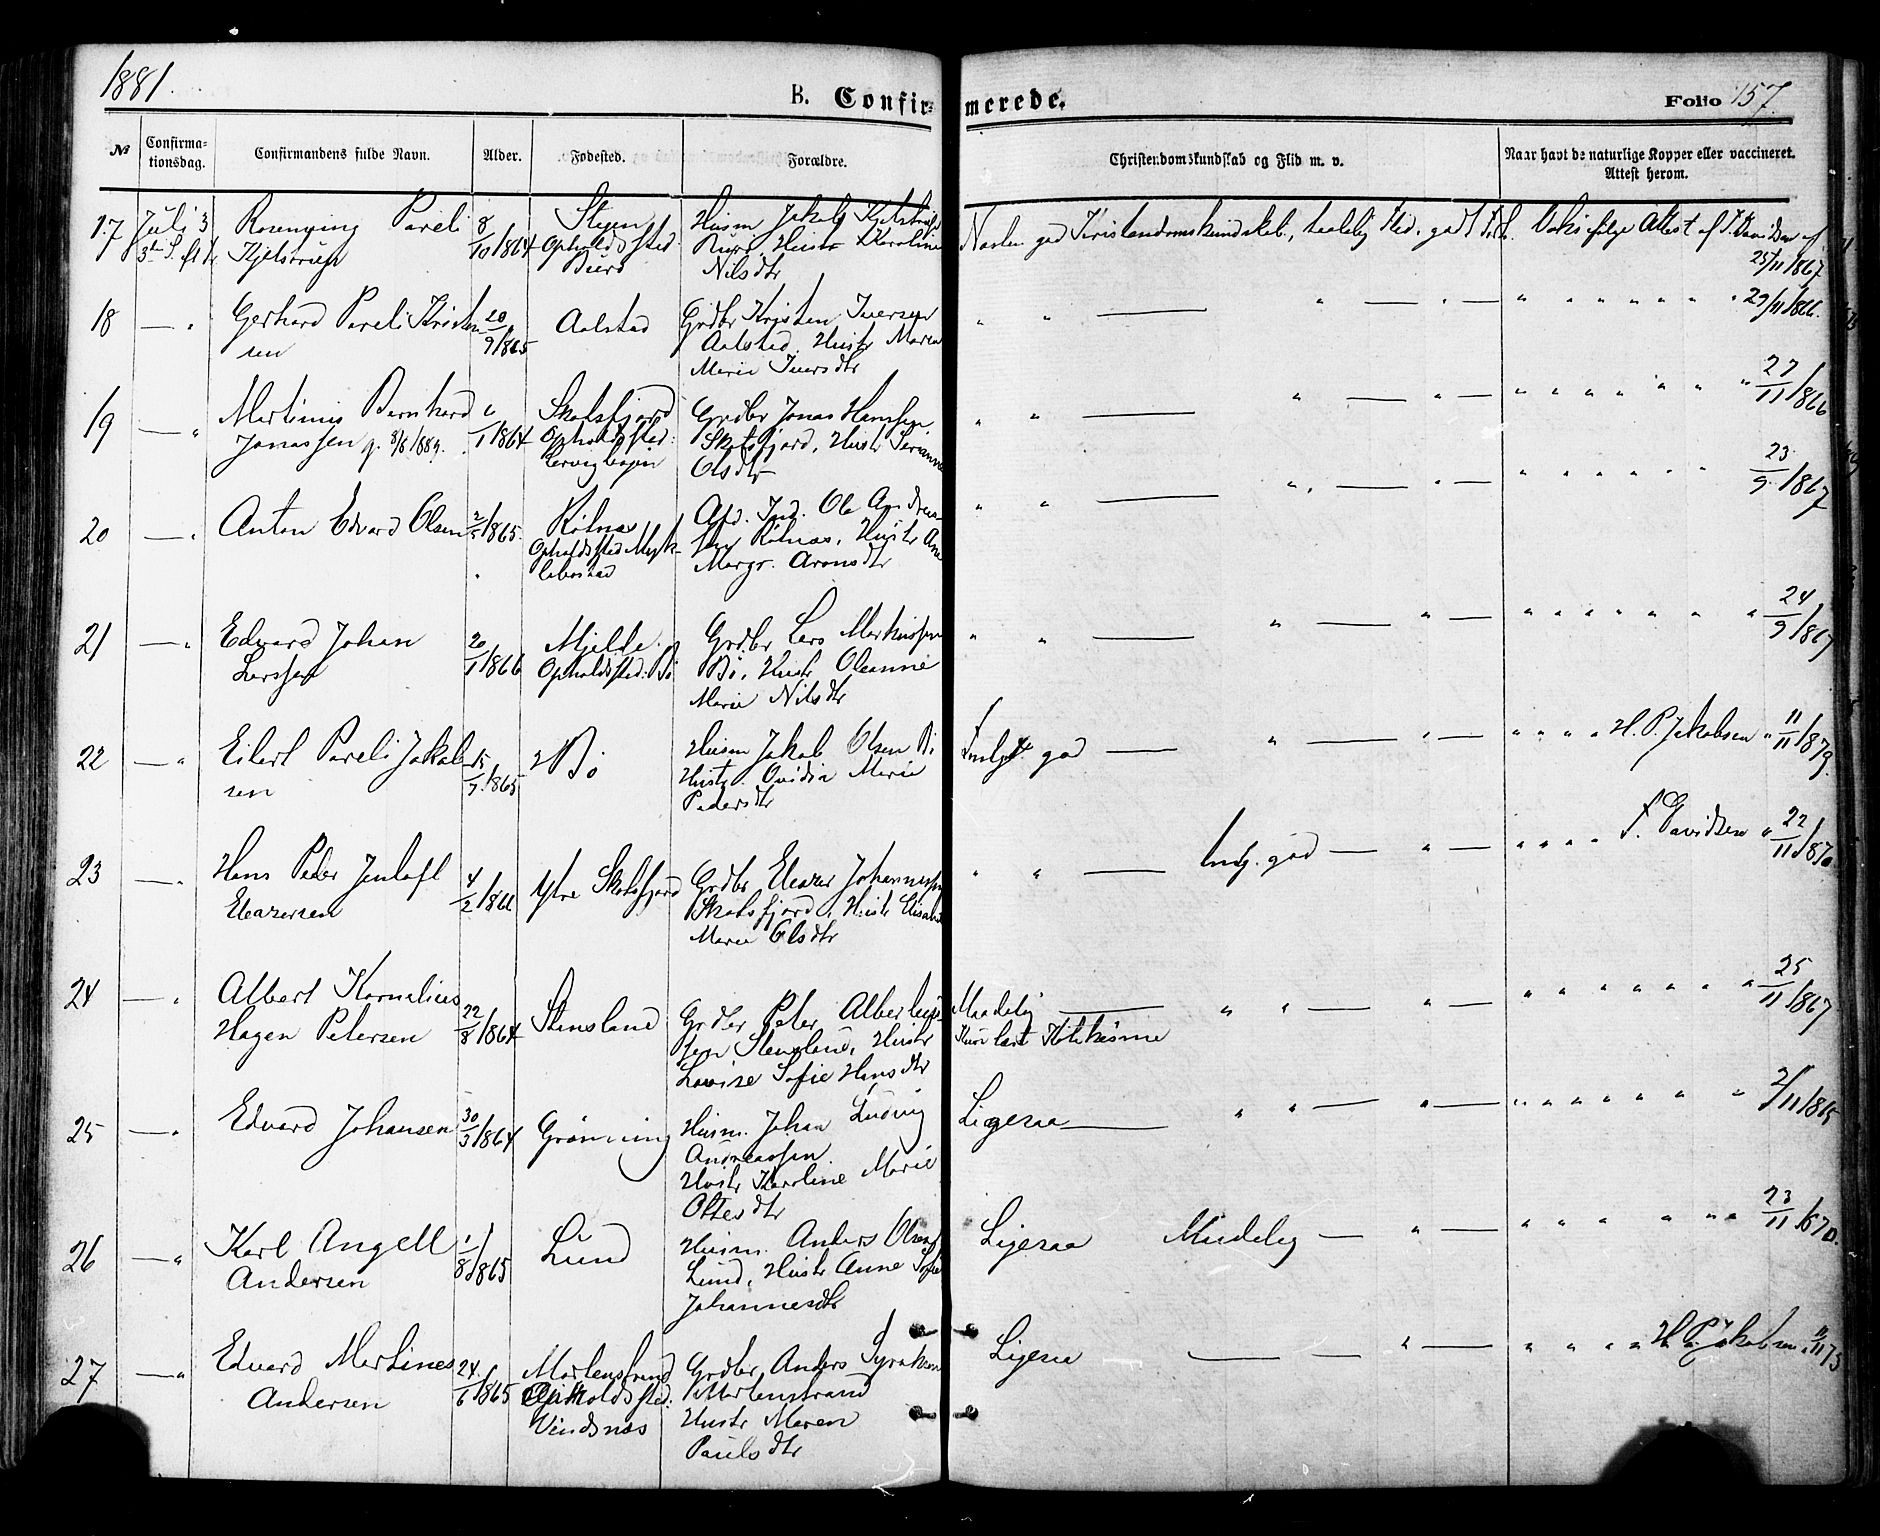 1881.
B. Confirmerede.
Folio 157.
No
Confirmationsdag.
Confirmandens fulde Navn.
Alder.
Fødested.
Forældre.
Christendomskundskab og Flid m. v.
Naar havt de naturlige Kopper eller vaccineret. Attest herom.
17
Juli 3
3die S. ef. tr.
Pareli
8/10 1864
Steyen
Opholdssted
Husm Jakob
Hustr Karoline
Nilsdtr
god Kristendomskundskab,
Attest af F. Davidsen af
25/11 1867
18 — "
Gerhard Pareli Kristen
sen
20/9 1865
Aalstad
Grdbr Kristen Iversen
Aalstad, Hustr Maren
Marie Iversdtr
" " — " — " — " " " " " " 29/11 1866.
19 — "
Martinus Bernhard
Jonassen
/1 1864
Skotsfjord
Opholdssted:
Grdbr Jonas Hanssen
Skotsfjord, Hustr
Olsdtr
" " — " — " — " " " " " " 27/11 1866
20 — "
Anton Edvard Olsen
2/5 1865.
Rótnæs
Opholdssted
Ole Andreas
sen Rótnæs, Hustr Ane
Margr. Aronsdtr
" " — " — " — " " " " " 23/9 1867
21 — "
Edvard Johan
Larssen
20/1 1866
Mjelde
Opholdssted: Bö
Grdbr Lars Markussen
Bö, Hustr Oleanne
Marie Nilsdtr
" " — " — " — " " " " " " 24/9 1867
22 — "
Eilert Pareli Jakob
sen
15/7 1865
Bö
Husm Jakob Olsen Bö
Hustr. Ovidia Marie
Pedersdtr
god — " — " — " " " " H. P. Jakobsen " 11/11 1879.
23 — "
Hans Peder Jentoft
Eleazersen
4/2 1866
Ytre Skotsfjord
Grdbr Eleazer Johannessen
Skotsfjord, Hustr
Marie Olsdtr
" " — god — " — " " " " F. Davidsen " 22/11 1870.
24 — "
Albert Kornelius
Hagen Petersen
22/8 1864
Stensland
Grdbr Peter Albertus
sen Stensland, Hustr
Lovise Sofie Hansdtr
Maadelig — " " — " — " " " " " " " 25/11 1867
Kun lært
25 — "
Edvard Johansen
30/3 1864
Grønning
Husm. Johan Ludvig
Andreassen
Hustr Karoline Marie
Ottesdtr
Ligesaa — " " — " — " " " " " " " 2/11 1865
26 — "
Karl Angell
Andersen
1/8 1865
Lund
Husm. Anders Olsen
Lund, Hustr Anne Sofie
Johannesdtr
Ligesaa Maadelig — " — " " " " " " 23/11 1870.
27 — "
Edvard Martines
Andersen
24/6 1865
Martenstrand
Opholdssted:
Vindsnæs
Grdbr. Anders
Martenstrand
Hustr Maren
Paulsdtr
Ligesaa — — " — " " " " H. P. Jakobsen " 11/11 73